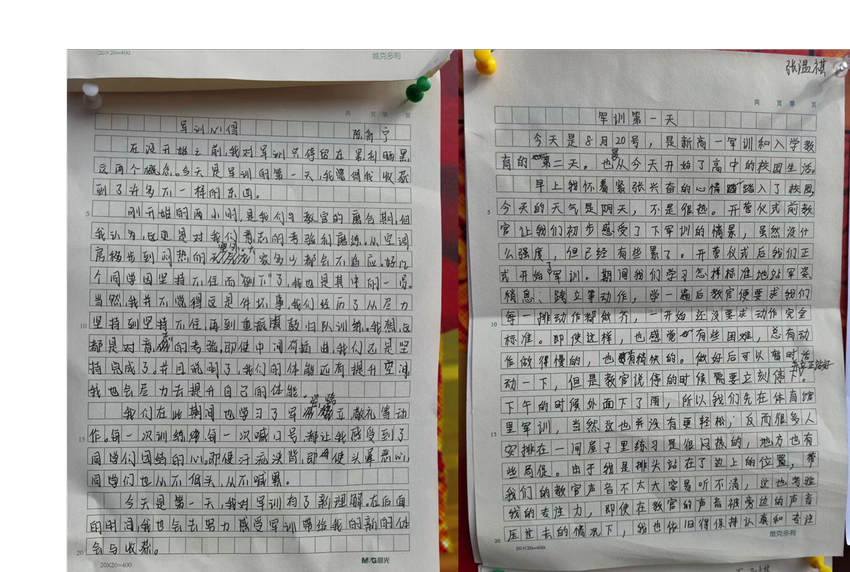 20×20=400
维克多利
共 页 第 页
军训心得
在没开始之前,我对军训只停留在累和晒黑
这两个概念。今天是军训的第一天,我觉得我收获
到了许多不一样的东西。
刚开始的两小时,是我们与教官的磨合期,但
我认为,这更是对我们意志的考验和磨练。从空调
房移步到闷热的
个同学因坚持不住而“倒下”了,我也是其中的一员。
当然,我并不觉得这是件坏事,我们经历了从尽力
坚持到坚持不住,再到重振旗鼓归队训练,我想,这
都是对意志的考验,即使中间有插曲,我们还是坚
持完成了,并且说明了,我们的体能还有提升空间,
我也会尽力去提升自己的体能。
我们在此期间也学习了军姿,跨立,敬礼等动
作。每一次训练,每一次喊口号,都让我感受到了
同学们团结的心。即使汗流浃背,即使头晕恶心,
同学们也从不低头,从不喊累。
今天是第一天,我对军训有了新理解,在后面
的时间,我也会去努力感受军训带给我的新的体
会与收获。
20×20=400
M&G晨光
张温祺
共 页 第 页
军训第一天
今天是8月20号,是新高一军训和入学教
育的第二天。也是从今天开始了高中的校园生活。
早上我怀着紧张兴奋的心情踏入了校园,
今天的天气是阴天,不是很热。开营仪式前教
官让我们初步感受了下军训的情景,虽然没什
么强度,但已经有些累了。开营仪式后我们正
式开始了军训。期间我们学习怎样标准地站军姿、
稍息、跨立等动作,学一遍后教官便要求我们
每一排动作都做齐,一开始还没要求动作完全
标准。即使这样,也感觉有些困难,总有动
作做得慢的,也有稍快的。做好后可以暂时活
动一下,但是教官说停的时候需要立刻停下。
下午的时候外面下了雨,所以我们先在体育馆
里军训,当然这也并没有更轻松,反而很多人
安排在一间屋子里练习是很闷热的,地方也有
些局促。由于我是排头站在了边上的位置,带
我们的教官声音不大太容易听不清,这也考验
我的专注力,即使在教官的声音被旁边的声音
压过去的情况下,我也依旧得保持认真和专注
20×20=400
维克多利